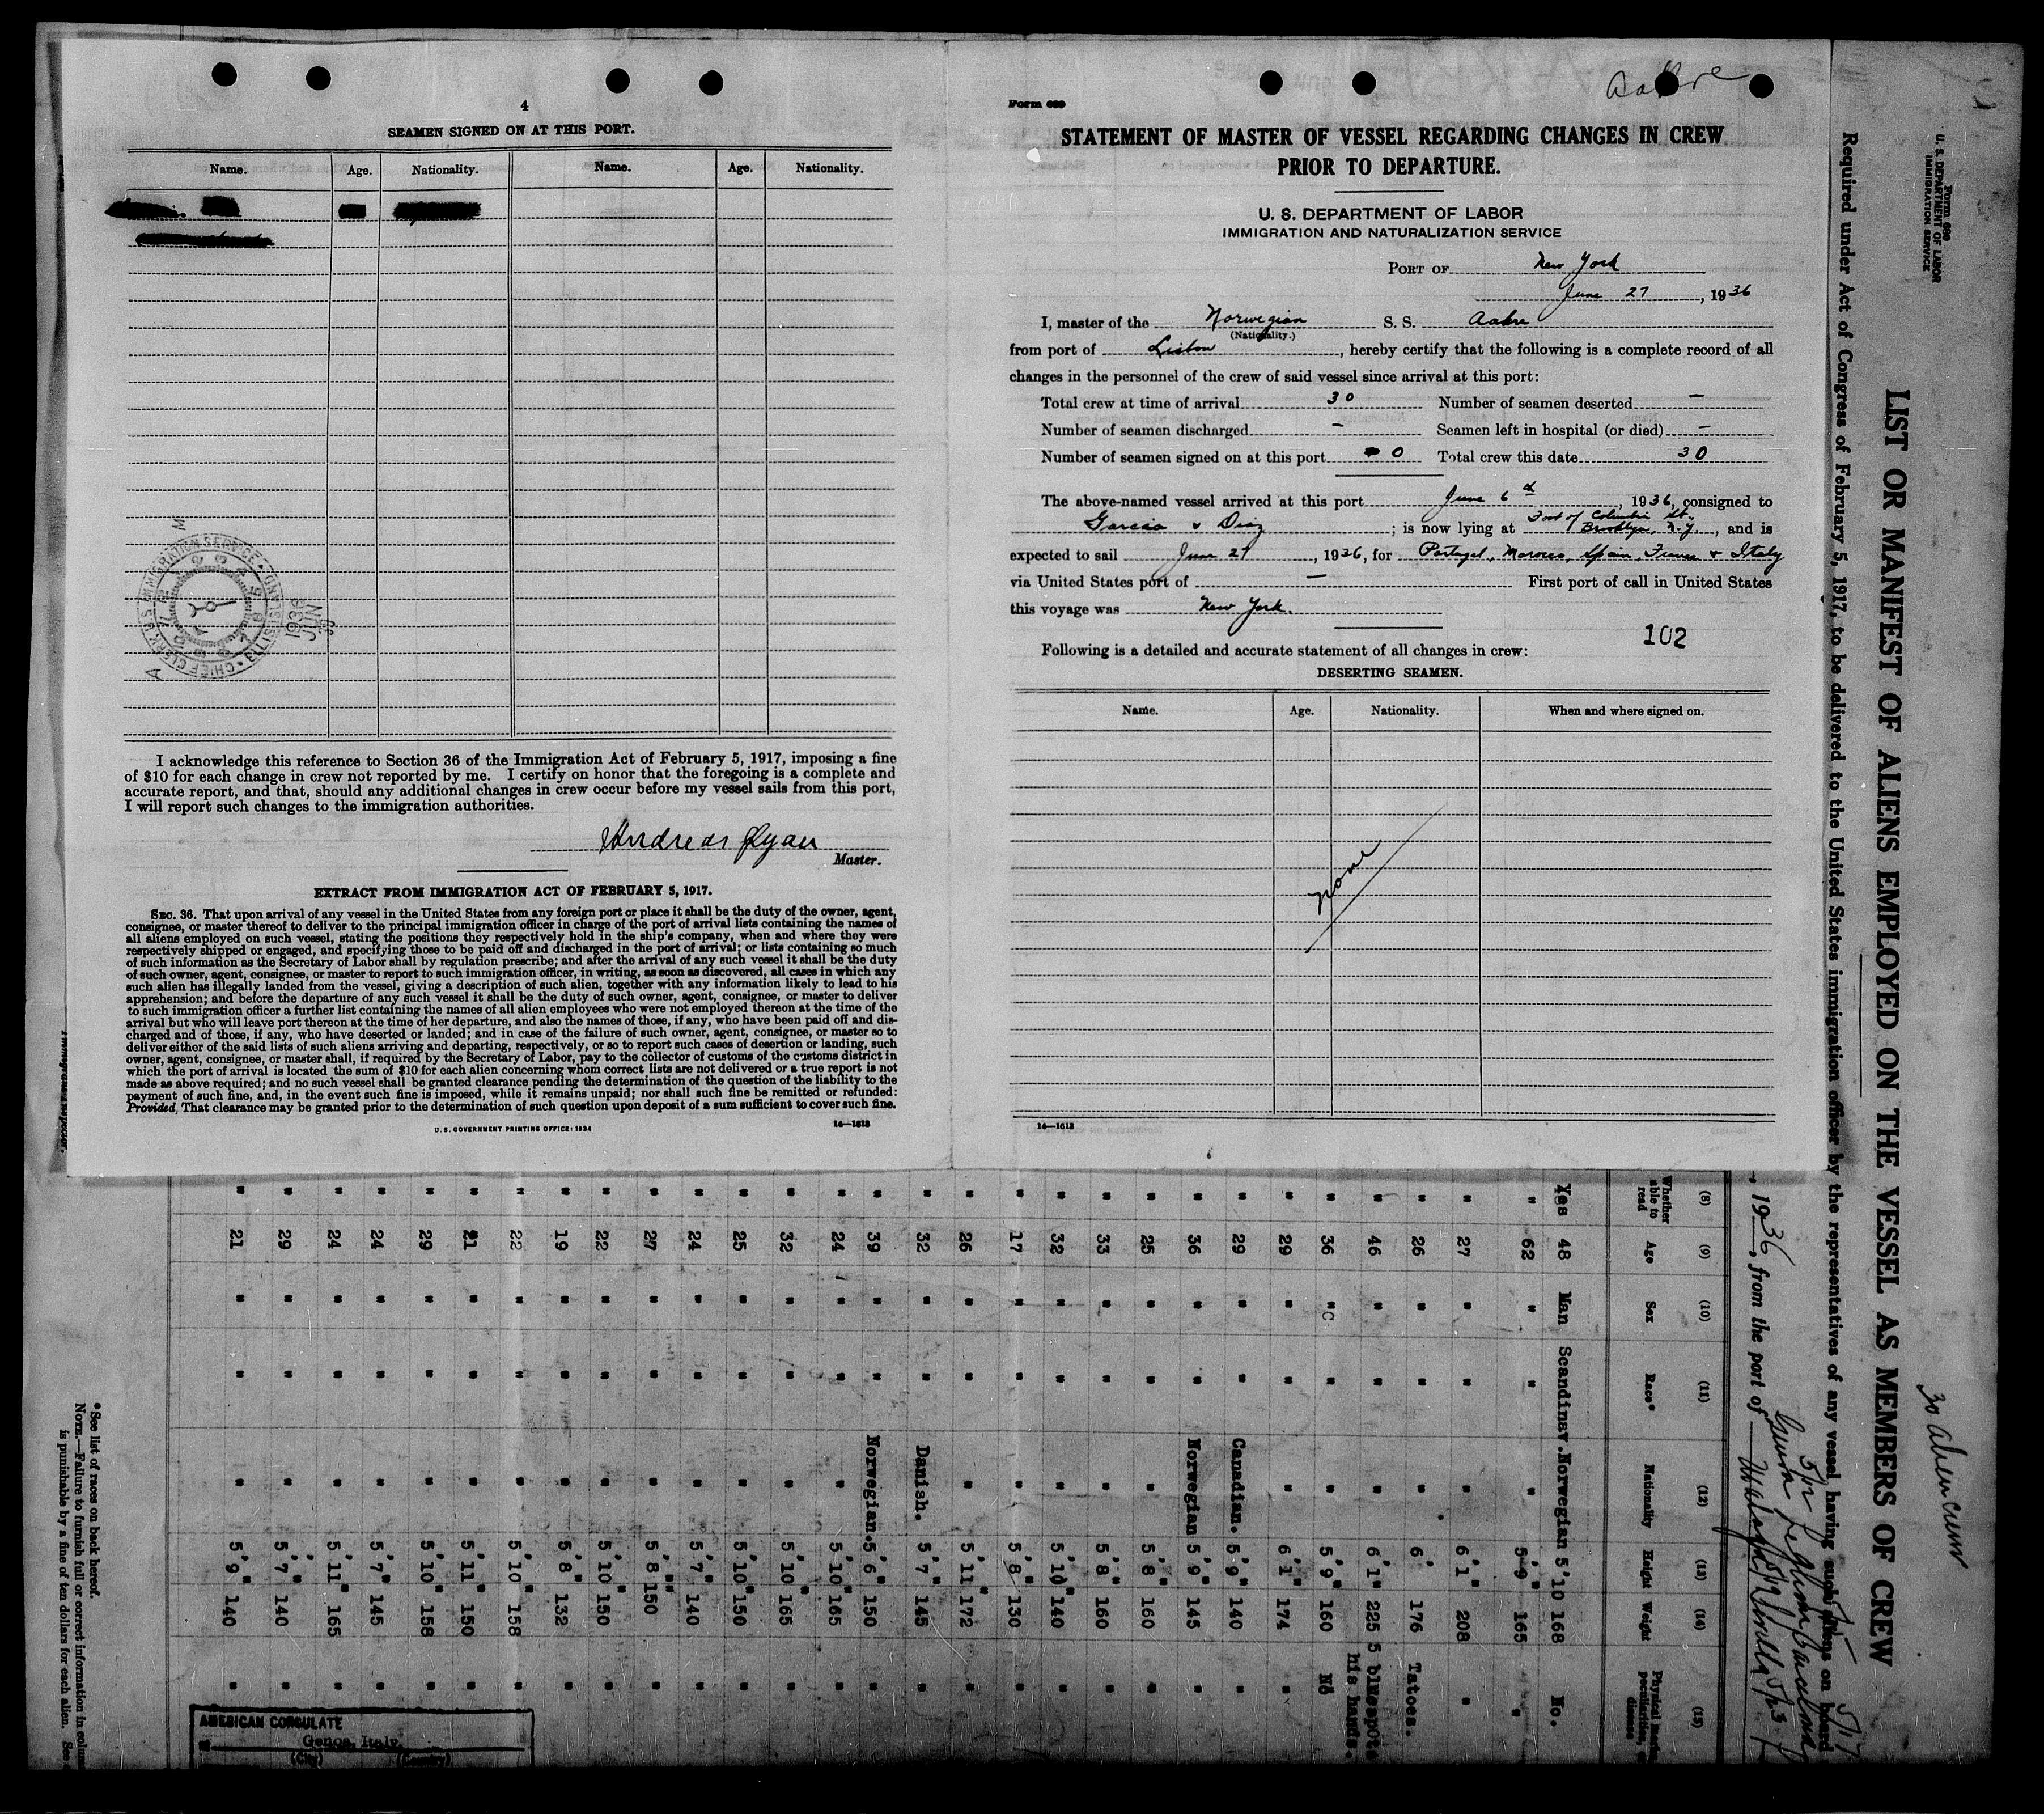 4
SEAMEN SIGNED ON AT THIS PORT.
Name. Age. Nationality. Name. Age. Nationality.
U.S. IMMIGRATION SERVICE
ELLIS ISLAND
CHIEF CLERK
1936
JUN
I acknowledge this reference to Section 36 of the Immigration Act of February 5, 1917, imposing a fine
of $10 for each change in crew not reported by me. I certify on honor that the foregoing is a complete and
accurate report, and that, should any additional changes in crew occur before my vessel sails from this port,
I will report such changes to the immigration authorities.
Andreas
Master.
EXTRACT FROM IMMIGRATION ACT OF FEBRUARY 5, 1917.
SEC. 36. That upon arrival of any vessel in the United States from any foreign port or place it shall be the duty of the owner, agent,
consignee, or master thereof to deliver to the principal immigration officer in charge of the port of arrival lists containing the names of
all aliens employed on such vessel, stating the positions they respectively hold in the ship's company, when and where they were
respectively shipped or engaged, and specifying those to be paid off and discharged in the port of arrival; or lists containing so much
of such information as the Secretary of Labor shall by regulation prescribe; and after the arrival of any such vessel it shall be the duty
of such owner, agent, consignee, or master to report to such immigration officer, in writing, as soon as discovered, all cases in which any
such alien has illegally landed from the vessel, giving a description of such alien, together with any information likely to lead to his
apprehension; and before the departure of any such vessel it shall be the duty of such owner, agent, consignee, or master to deliver
to such immigration officer a further list containing the names of all alien employees who were not employed thereon at the time of the
arrival but who will leave port thereon at the time of her departure, and also the names of those, if any, who have been paid off and dis-
charged and of those, if any, who have deserted or landed; and in case of the failure of such owner, agent, consignee, or master so to
deliver either of the said lists of such aliens arriving and departing, respectively, or so to report such cases of desertion or landing, such
owner, agent, consignee, or master shall, if required by the Secretary of Labor, pay to the collector of customs of the customs district in
which the port of arrival is located the sum of $10 for each alien concerning whom correct lists are not delivered or a true report is not
made as above required; and no such vessel shall be granted clearance pending the determination of the question of the liability to the
payment of such fine, and, in the event such fine is imposed, while it remains unpaid; nor shall such fine be remitted or refunded:
Provided, That clearance may be granted prior to the determination of such question upon deposit of a sum sufficient to cover such fine.
U. S. GOVERNMENT PRINTING OFFICE: 1934
14—1613
Aakre
Form 689
STATEMENT OF MASTER OF VESSEL REGARDING CHANGES IN CREW
PRIOR TO DEPARTURE.
U. S. DEPARTMENT OF LABOR
IMMIGRATION AND NATURALIZATION SERVICE
PORT OF New York
June 27, 1936
I, master of the Norwegian S. S. Aakre
(Nationality.)
from port of Lisbon, hereby certify that the following is a complete record of all
changes in the personnel of the crew of said vessel since arrival at this port:
Total crew at time of arrival 30 Number of seamen deserted —
Number of seamen discharged — Seamen left in hospital (or died) —
Number of seamen signed on at this port 0 Total crew this date 30
The above-named vessel arrived at this port June 6th, 1936, consigned to
Garcia & Diaz; is now lying at Foot of Columbia St., Brooklyn, N.Y., and is
expected to sail June 27, 1936, for Portugal, Morocco, Spain, France & Italy
via United States port of — First port of call in United States
this voyage was New York.
102
Following is a detailed and accurate statement of all changes in crew:
DESERTING SEAMEN.
Name. Age. Nationality. When and where signed on.
None
14—1613
Form 680
U. S. DEPARTMENT OF LABOR
IMMIGRATION SERVICE
LIST OR MANIFEST OF ALIENS EMPLOYED ON THE VESSEL AS MEMBERS OF CREW
30 alien crew
Required under Act of Congress of February 5, 1917, to be delivered to the United States immigration officer by the representatives of any vessel having such aliens on board
, 1936, from the port of
(8) (9) (10) (11) (12) (13) (14) (15)
Whether able to read Age Sex Race* Nationality Height Weight Physical marks, peculiarities, disease
Yes 48 Man Scandinav. Norwegian 5'10 168 No.
" 62 " " " 5'9" 165 "
" 27 " " " 6'1" 208 "
" 26 " " " 6' 176 Tatoes.
" 46 " " " 6'1" 225 5 bluespots his hands.
" 36 "C " " 5'9" 160 No
" 29 " " " 6'1" 174 "
" 29 " " Canadian. 5'9" 140 "
" 36 " " Norwegian 5'9" 145 "
" 25 " " " 5'8" 160 "
" 33 " " " 5'8" 160 "
" 32 " " " 5'10" 140 "
" 17 " " " 5'8" 130 "
" 26 " " " 5'11" 172 "
" 32 " " Danish. 5'7" 145 "
" 39 " " Norwegian. 5'6" 150 "
" 24 " " " 5'10" 165 "
" 32 " " " 5'10" 165 "
" 25 " " " 5'10" 150 "
" 24 " " " 5'7" 140 "
" 27 " " " 5'8" 150 "
" 22 " " " 5'10" 150 "
" 19 " " " 5'8" 132 "
" 22 " " " 5'10" 158 "
" 21 " " " 5'11" 150 "
" 29 " " " 5'10" 158 "
" 24 " " " 5'7" 145 "
" 24 " " " 5'11" 165 "
" 29 " " " 5'7" 140 "
" 21 " " " 5'9" 140 "
AMERICAN CONSULATE
Genoa, Italy.
(City) (Country)
*See list of races on back hereof.
NOTE.—Failure to furnish full or correct information in
is punishable by a fine of ten dollars for each alien. See
Immigrant Inspector.